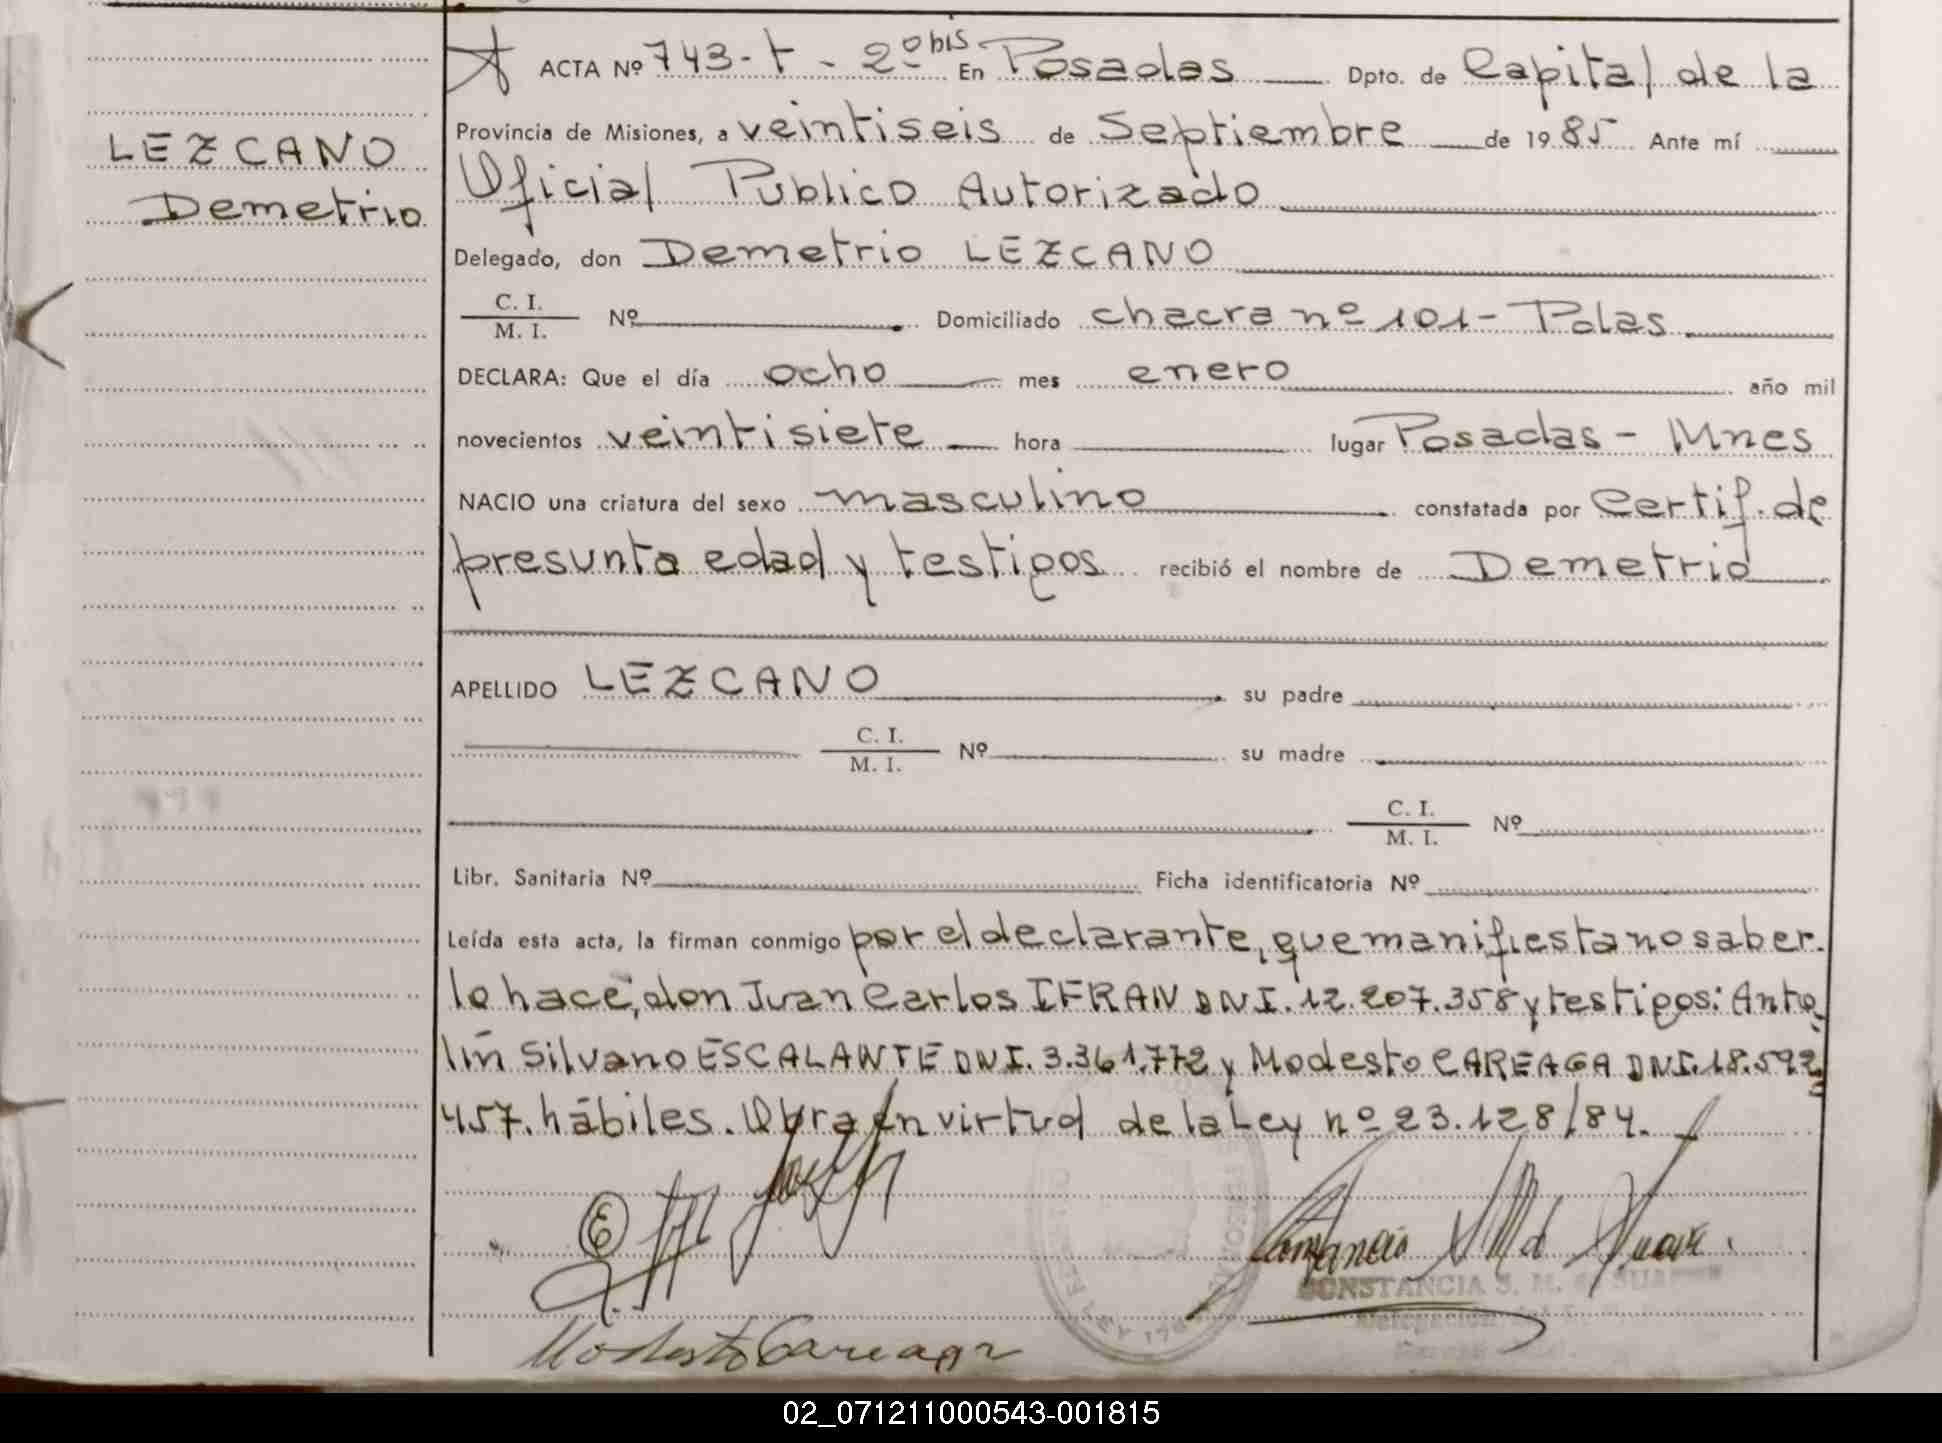 ACTA Nº 743-t - 2º bis En Posadas Dpto. de Capital de la
LEZCANO
Demetrio
Provincia de Misiones, a veintiseis de Septiembre de 1985 Ante mí
Oficial Publico Autorizado
Delegado, don Demetrio LEZCANO
C. I.
M. I. Nº Domiciliado chacra nº 101- Pdas.
DECLARA: Que el día ocho mes enero año mil
novecientos veintisiete hora lugar Posadas - Mnes
NACIO una criatura del sexo masculino constatada por Certif. de
presunta edad y testigos recibió el nombre de Demetrio
APELLIDO LEZCANO su padre
C. I.
M. I. Nº su madre
C. I.
M. I. Nº
Libr. Sanitaria Nº Ficha identificatoria Nº
Leída esta acta, la firman conmigo por el declarante, que manifiesta no saber
lo hace, don Juan Carlos IFRAN DNI. 12.207.358 y testigos: Anto
lin Silvano ESCALANTE DNI. 3.361.772 y Modesto CAREAGA DNI. 18.592
457. hábiles. Obra en virtud de la Ley nº 23.128/84.
CONSTANCIA S. M.
Modesto Careaga
02_071211000543-001815